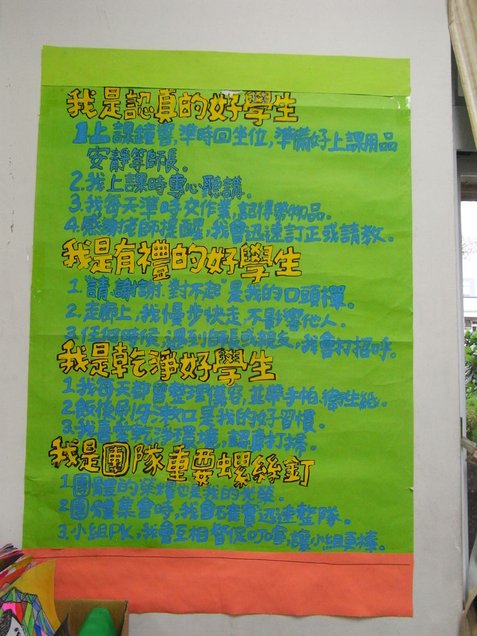 我是認真的好學生
1.上課鐘響,準時回坐位,準備好上課用品
安靜等師長。
2.我上課時專心聽講。
3.我每天準時交作業,記得帶物品。
4.感謝老師提醒,我會迅速訂正或請教。
我是有禮的好學生
1.請.謝謝.對不起"是我的口頭禪。
2.走廊上,我慢步快走,不影響他人。
3.任何時候,遇到師長或親友,我會打招呼。
我是乾淨好學生
1.我每天都會整理儀容,並帶手帕.衛生紙。
2.飯後刷牙漱口是我的好習慣。
3.我喜歡乾淨環境,認真打掃。
我是團隊重要螺絲釘
1.團體的榮譽也是我的光榮。
2.團體集會時,我會確實迅速整隊。
3.小組PK,我會互相督促叮嚀,讓小組更棒。